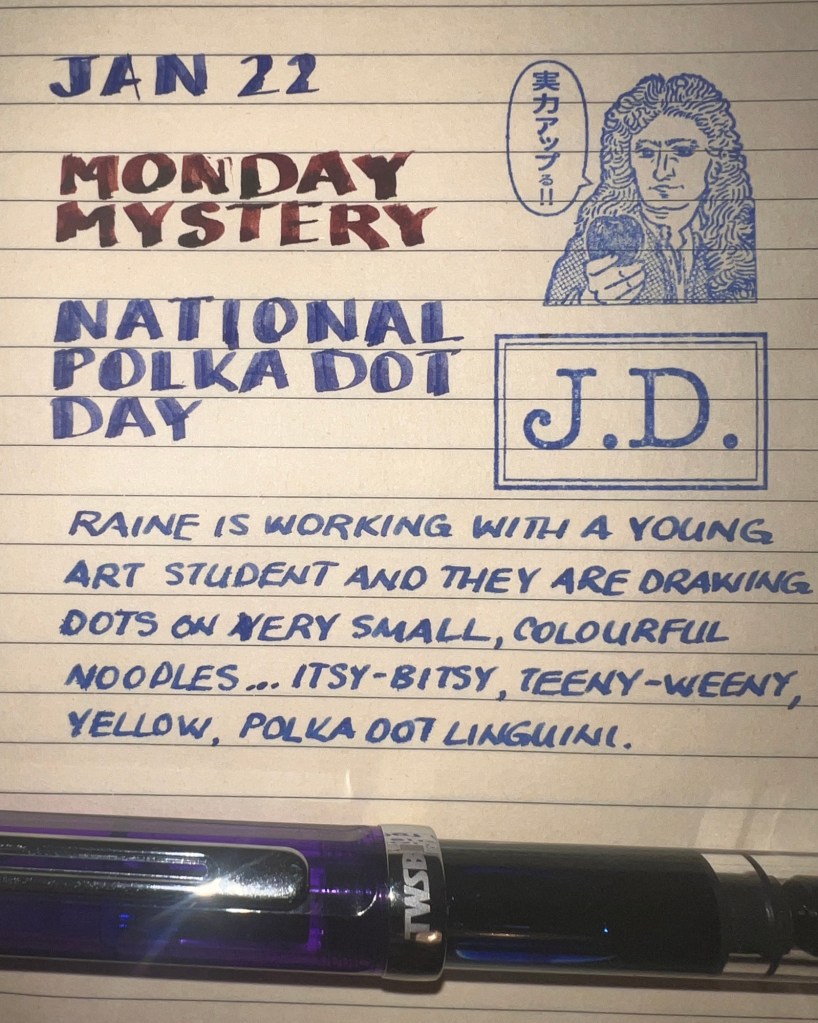 JAN 22
実力アップる!!
MONDAY
MYSTERY
NATIONAL
POLKA DOT
DAY
J.D.
RAINE IS WORKING WITH A YOUNG
ART STUDENT AND THEY ARE DRAWING
DOTS ON VERY SMALL, COLOURFUL
NOODLES... ITSY-BITSY, TEENY-WEENY,
YELLOW, POLKA DOT LINGUINI.
TWSBI